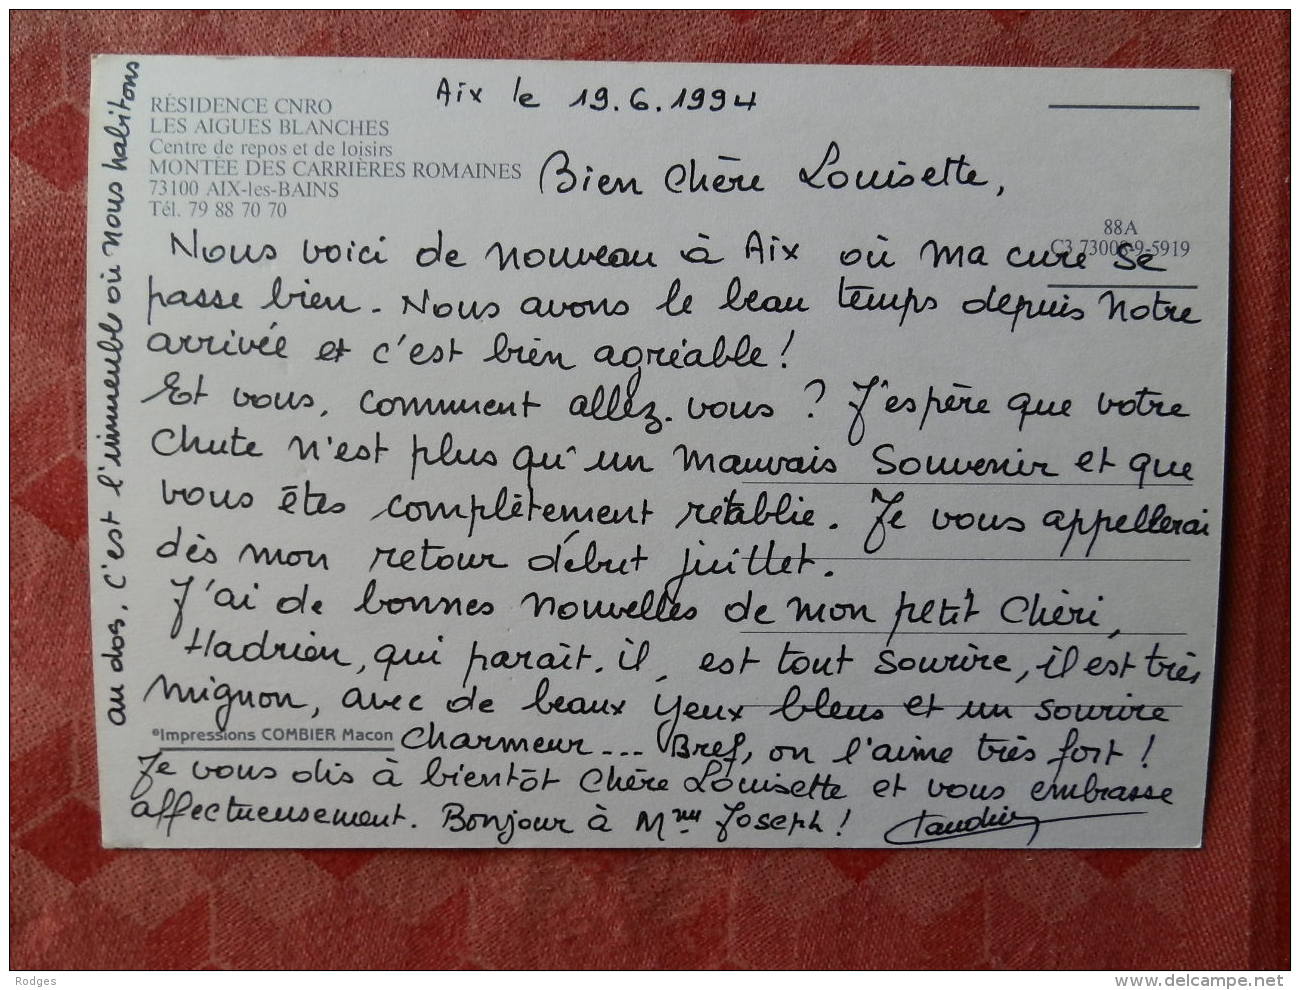 Aix le 19.6.1994
RÉSIDENCE CNRO
LES AIGUES BLANCHES
Centre de repos et de loisirs
MONTÉE DES CARRIÈRES ROMAINES
73100 AIX-les-BAINS
Tél. 79 88 70 70
Bien Chère Louisette,
88A
C3 73008-9-5919
Nous voici de nouveau à Aix où ma cure se
passe bien. Nous avons le beau temps depuis notre
arrivée et c'est bien agréable !
Et vous, comment allez-vous ? J'espère que votre
chute n'est plus qu'un mauvais souvenir et que
vous êtes complètement rétablie. Je vous appellerai
dès mon retour début juillet.
J'ai de bonnes nouvelles de mon petit chéri,
Hadrien, qui paraît-il, est tout sourire, il est très
mignon, avec de beaux yeux bleus et un sourire
charmeur... Bref, on l'aime très fort !
©Impressions COMBIER Macon
Je vous dis à bientôt Chère Louisette et vous embrasse
affectueusement. Bonjour à Mme Joseph !
au dos, c'est l'immeuble où nous habitons
Rodges
www.delcampe.net